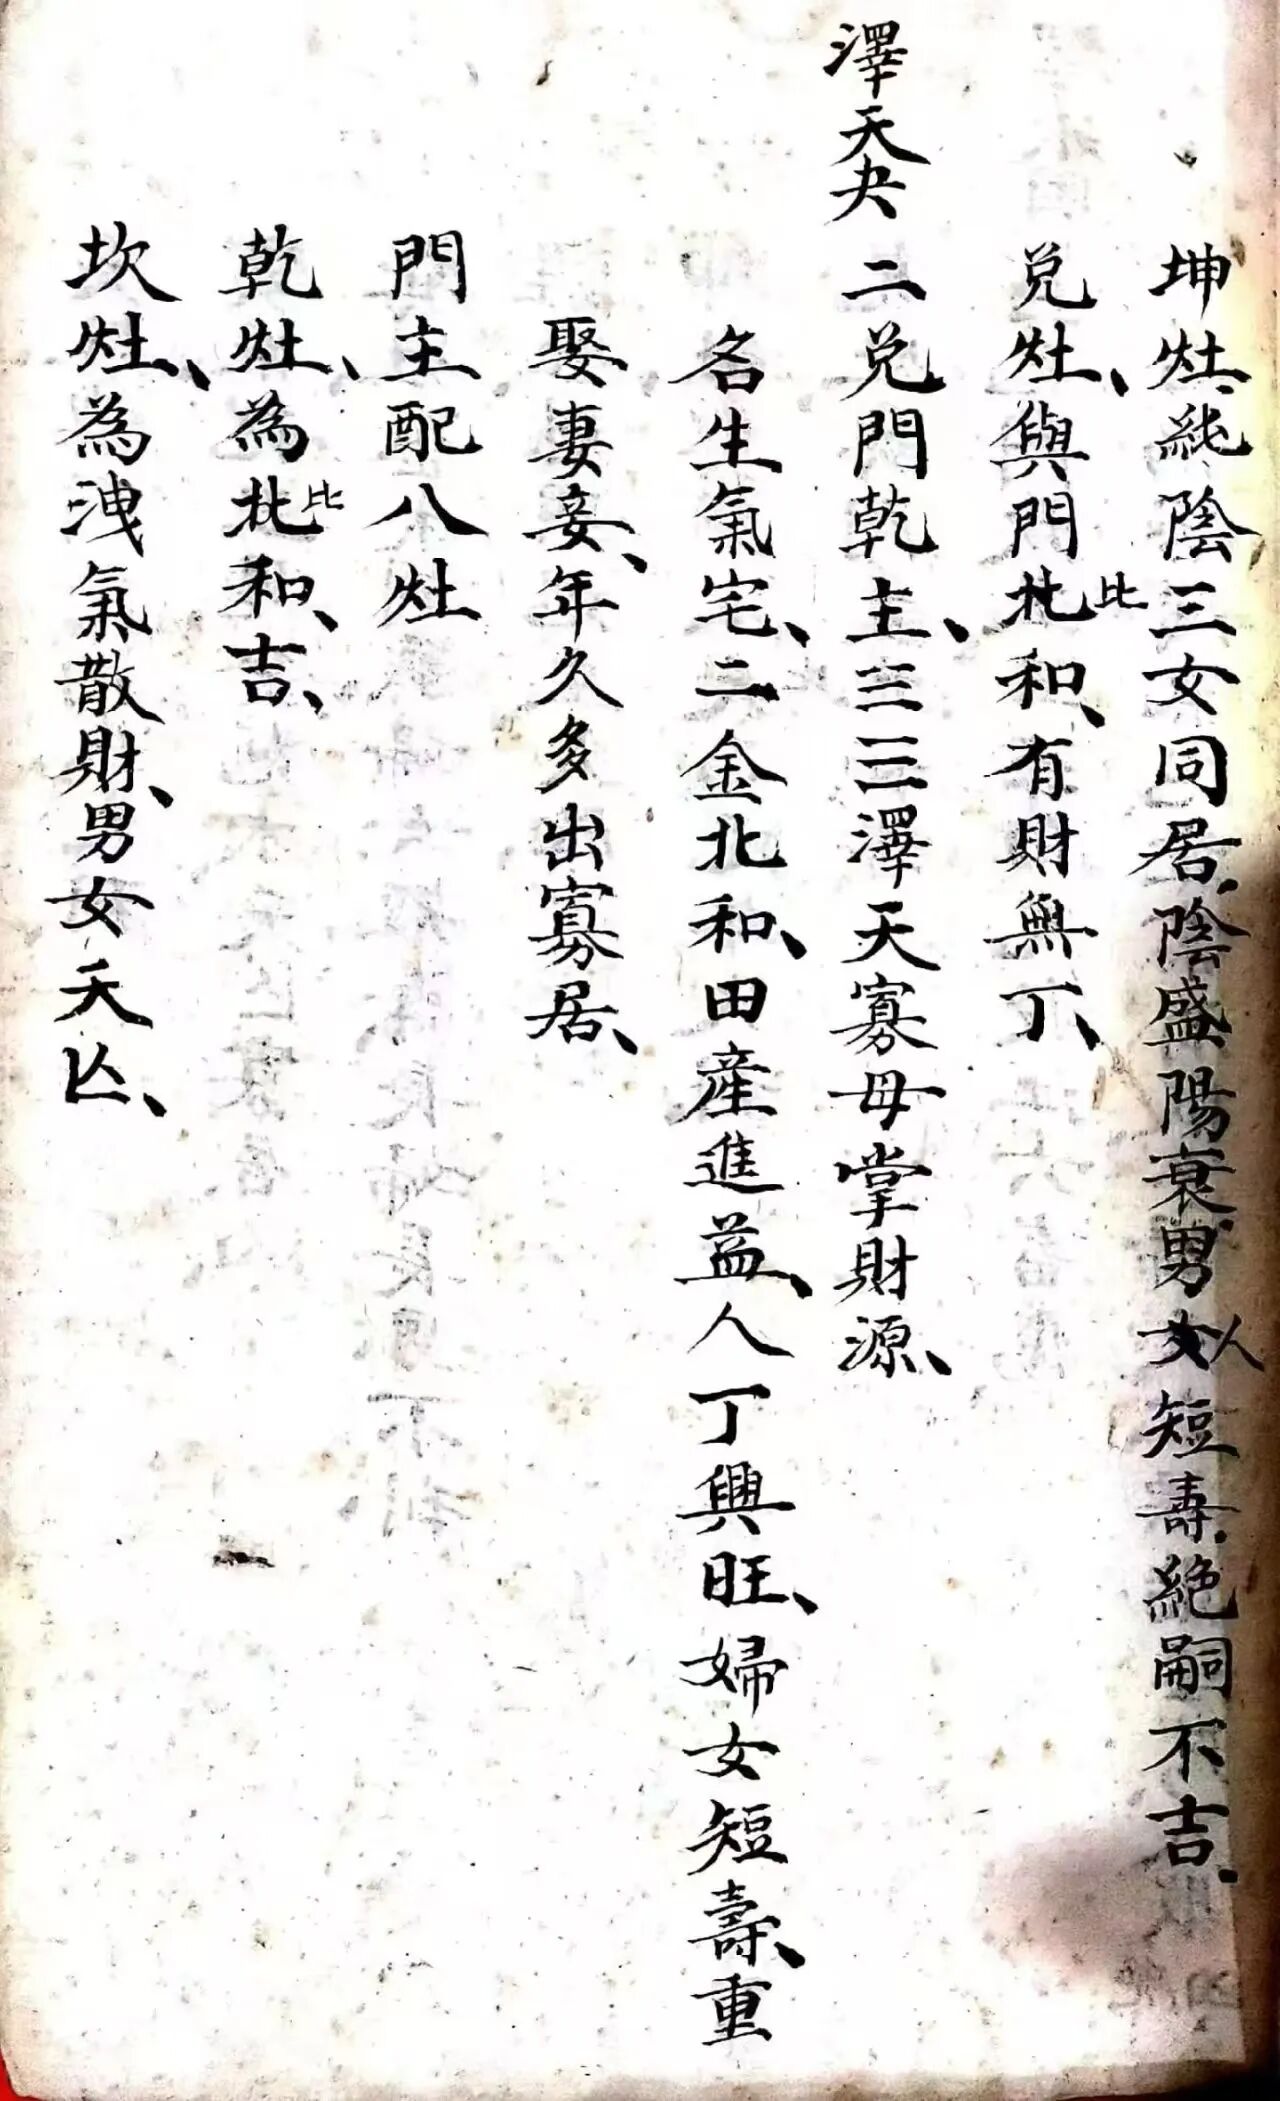 坤灶、純陰三女同居、陰盛陽衰、男女人短壽、絶嗣不吉、
兑灶、與門北比和、有財無丁、
澤天夬
二兑門乾主、☱☰澤天寡母掌財源、
名生氣宅、二金北和、田産進益、人丁興旺、婦女短壽、重
娶妻妾、年久多出寡居、
門主配八灶
乾灶、為北比和、吉、
坎灶、為洩氣散財、男女夭亾、